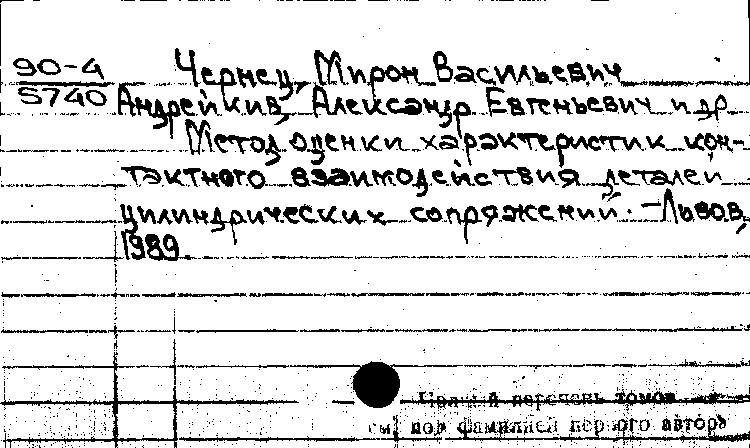 90-4
5740
Чернец, Мирон Васильевич
Андрейкив, Александр Евгеньевич и др
Метод оценки характеристик кон-
тактного взаимодействия деталей
цилиндрических сопряжений. -Львов,
1989.
перечень томов
см. под фамилией первого автора